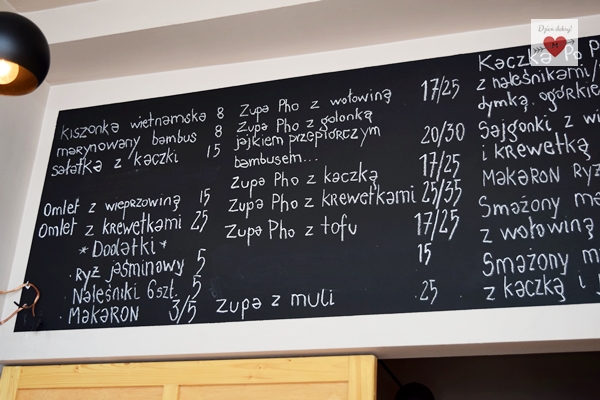 Kiszonka wietnamska 8
marynowany bambus 8
sałatka z kaczki 15
Omlet z wieprzowiną 15
Omlet z krewetkami 25
*Dodatki*
.ryż jaśminowy 5
.Naleśniki 6szt. 5
.Makaron 3/5
Zupa Pho z wołowiną 17/25
Zupa Pho z golonką
jajkiem przepiórczym 20/30
bambusem...
Zupa Pho z kaczką 17/25
Zupa Pho z krewetkami 25/35
Zupa Pho z tofu 17/25
15
Zupa z muli .25
Kaczka Po P
z naleśnikami/
dymką, ogórkie
Sajgonki z wi
i krewetką
Makaron Ryż
Smażony ma
z wołowiną
Smażony m
z kaczką i
Dzien dobry!
M